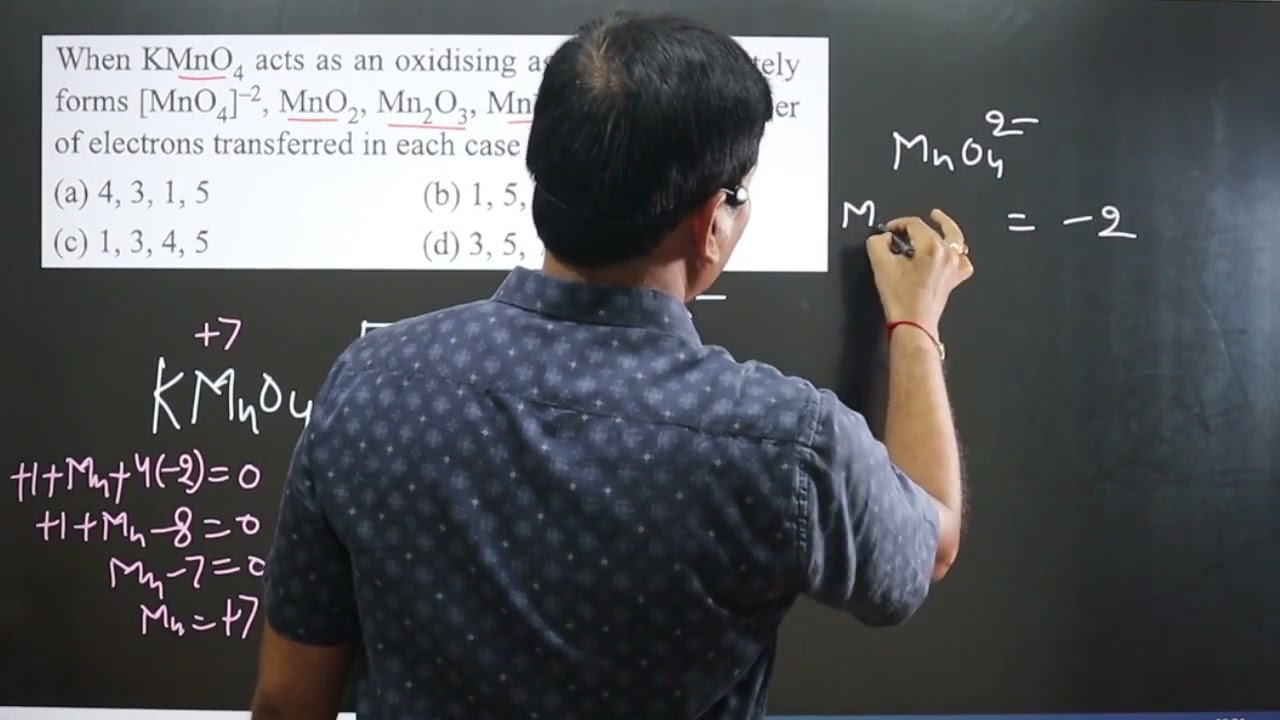 When KMnO₄ acts as an oxidising
forms [MnO₄]⁻², MnO₂, Mn₂O₃, Mn
of electrons transferred in each case
(a) 4, 3, 1, 5
(b) 1, 5,
(c) 1, 3, 4, 5
(d) 3, 5,
MnO₄²⁻
= -2
+7
KMnO₄
+1+Mn+4(-2)=0
+1+Mn-8=0
Mn-7=0
Mn=+7